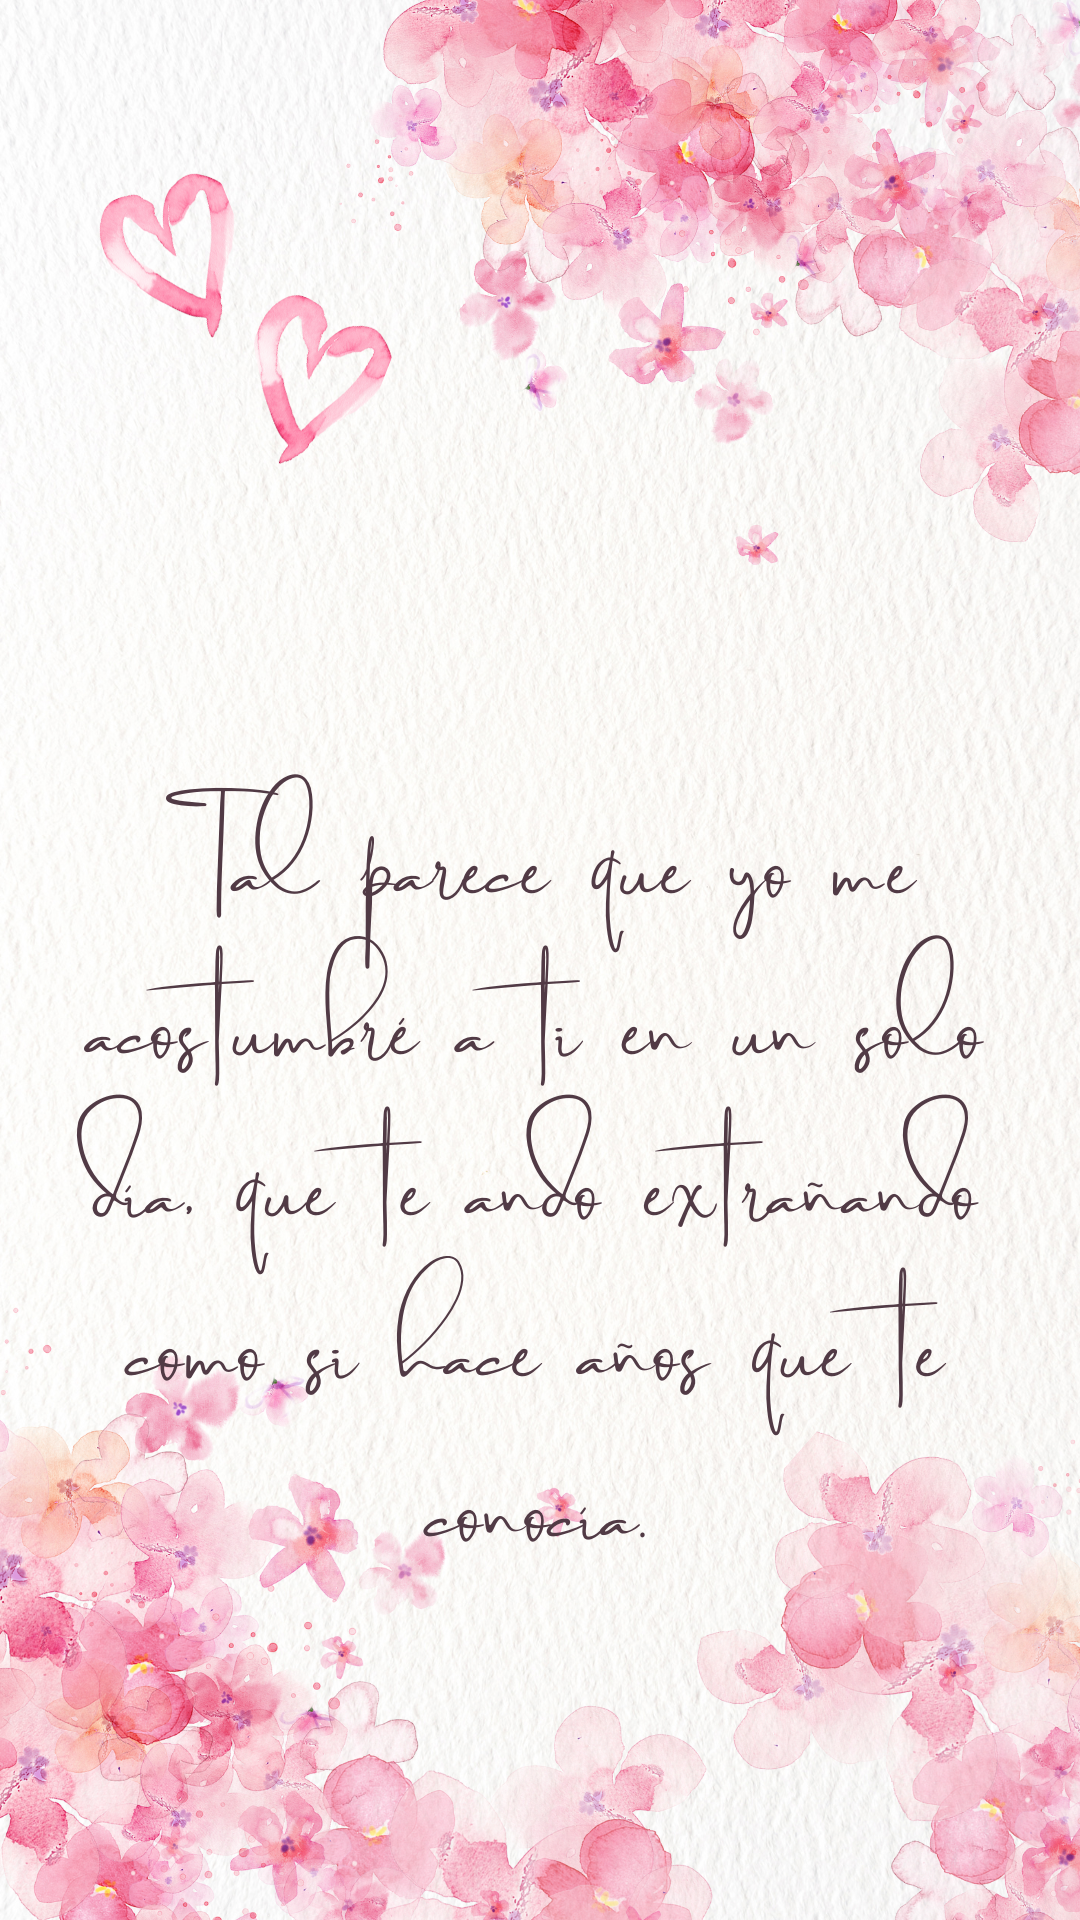 Tal parece que yo me
acostumbré a ti en un solo
día, que te ando extrañando
como si hace años que te
conocía.